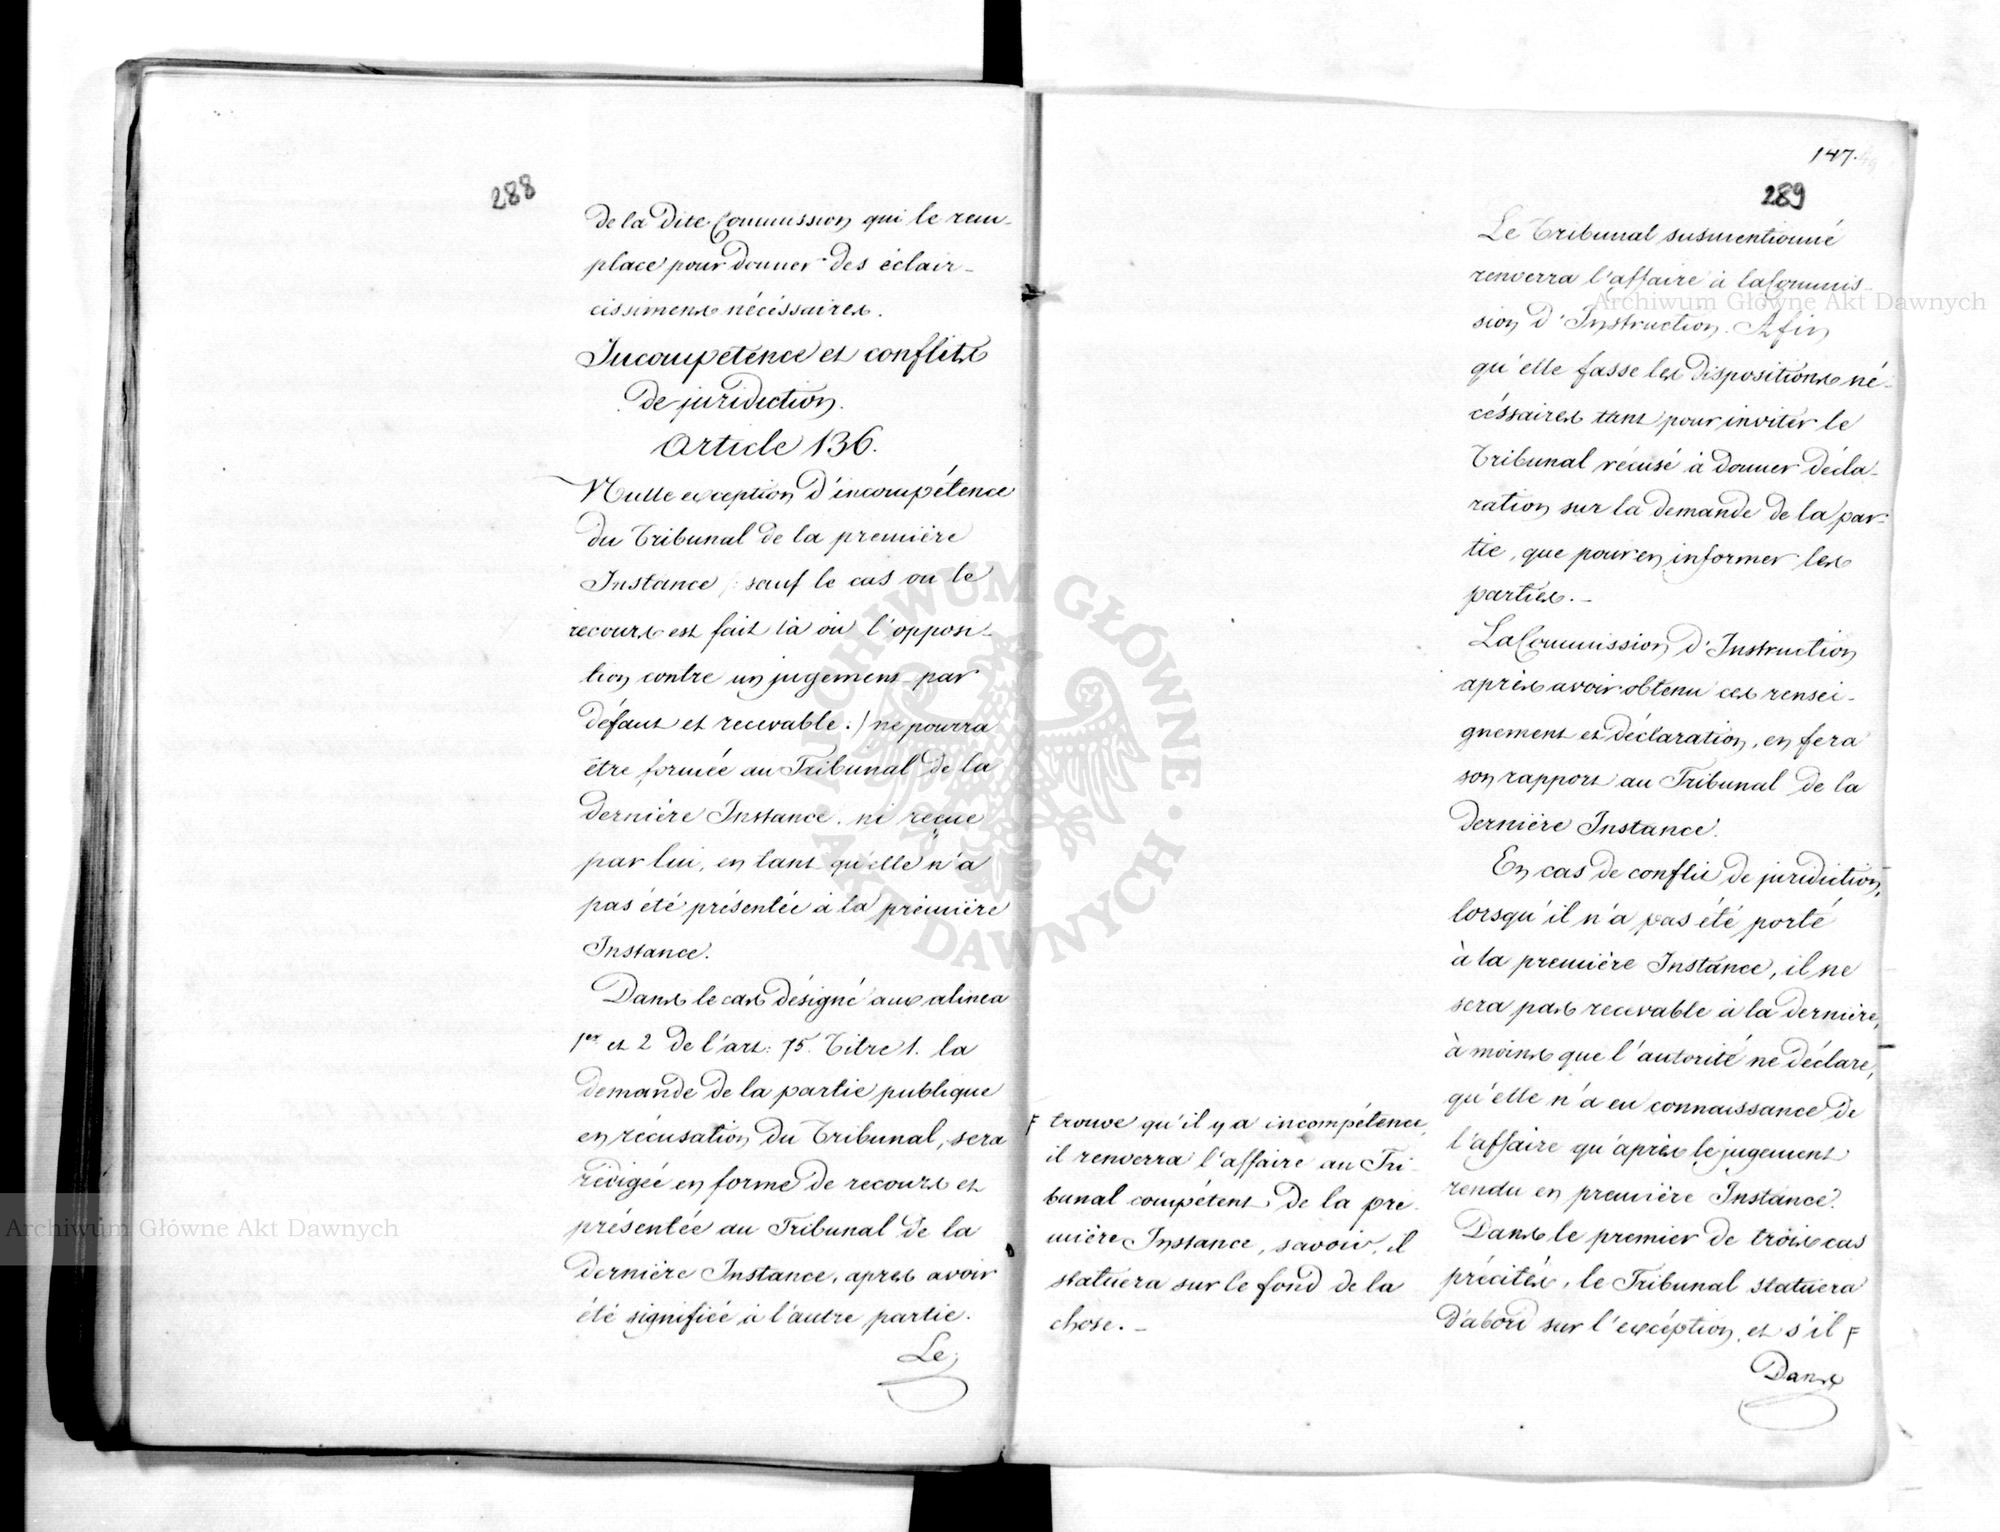 288
de la dite Commission qui le rem-
place pour donner des éclair-
cissimens nécéssaires.
Incompétence et conflits
de juridiction.
Article 136.
Nulle exception d'incompétence
du Tribunal de la première
Instance /: sauf le cas ou le
recours est fait là où l'opposi-
tion contre un jugement par
défaut et recevable :/ ne pourra
être formée au Tribunal de la
dernière Instance, ni reçue
par lui, en tant qu'elle n'a
pas été présentée à la première
Instance.
Dans le cas désigné aux alinea
1er et 2 de l'art: 75. Titre 1. la
demande de la partie publique
en récusation du Tribunal, sera
rédigée en forme de recours et
présentée au Tribunal de la
dernière Instance, après avoir
été signifiée à l'autre partie.
Le
147.
289
Le Tribunal susmentionné
renverra l'affaire à la Commis-
sion d'Instruction. Afin
qu'elle fasse les dispositions né-
céssaires tant pour inviter le
Tribunal récusé à donner décla-
ration sur la demande de la par-
tie, que pour en informer les
parties.-
La Commission d'Instruction
après avoir obtenu ces rensei-
gnement et déclaration, en fera
son rapport au Tribunal de la
dernière Instance.
En cas de conflit de juridiction,
lorsqu'il n'a pas été porté
à la première Instance, il ne
sera pas recevable à la dernière,
à moins que l'autorité ne déclare,
qu'elle n'a eu connaissance de
l'affaire qu'après le jugement
rendu en première Instance.
Dans le premier de trois cas
précités, le Tribunal statuera
d'abord sur l'excéption, et s'il F
F trouve qu'il y a incompétence,
il renverra l'affaire au Tri-
bunal compétent de la pre-
mière Instance, savoir, il
statuera sur le fond de la
chose.-
Dans
Archiwum Główne Akt Dawnych
Archiwum Główne Akt Dawnych
ARCHIWUM GŁÓWNE · AKT DAWNYCH ·